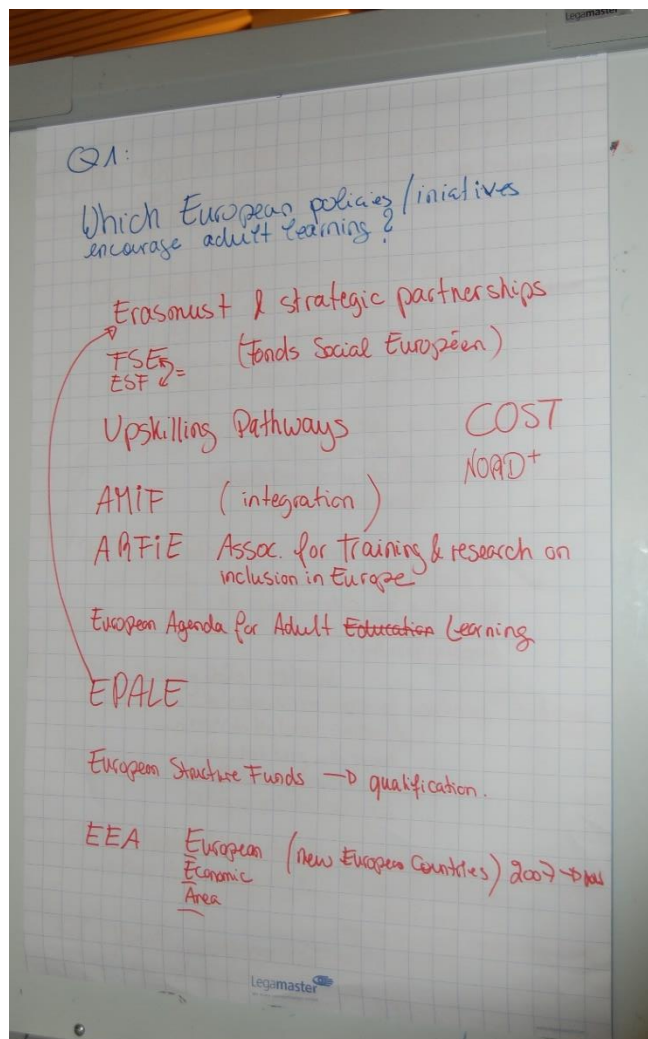 Legamaster
Q1:
Which European policies/iniatives
encourage adult learning?
Erasmus+ & strategic partnerships
FSE (Fonds Social Européen)
ESF =
Upskilling Pathways COST
NORD+
AMIF (integration)
ARFIE Assoc. for training & research on
inclusion in Europe
European Agenda for Adult Education Learning
EPALE
European Structure Funds → qualification.
EEA European (new European Countries) 2007 → now
Economic
Area
Legamaster